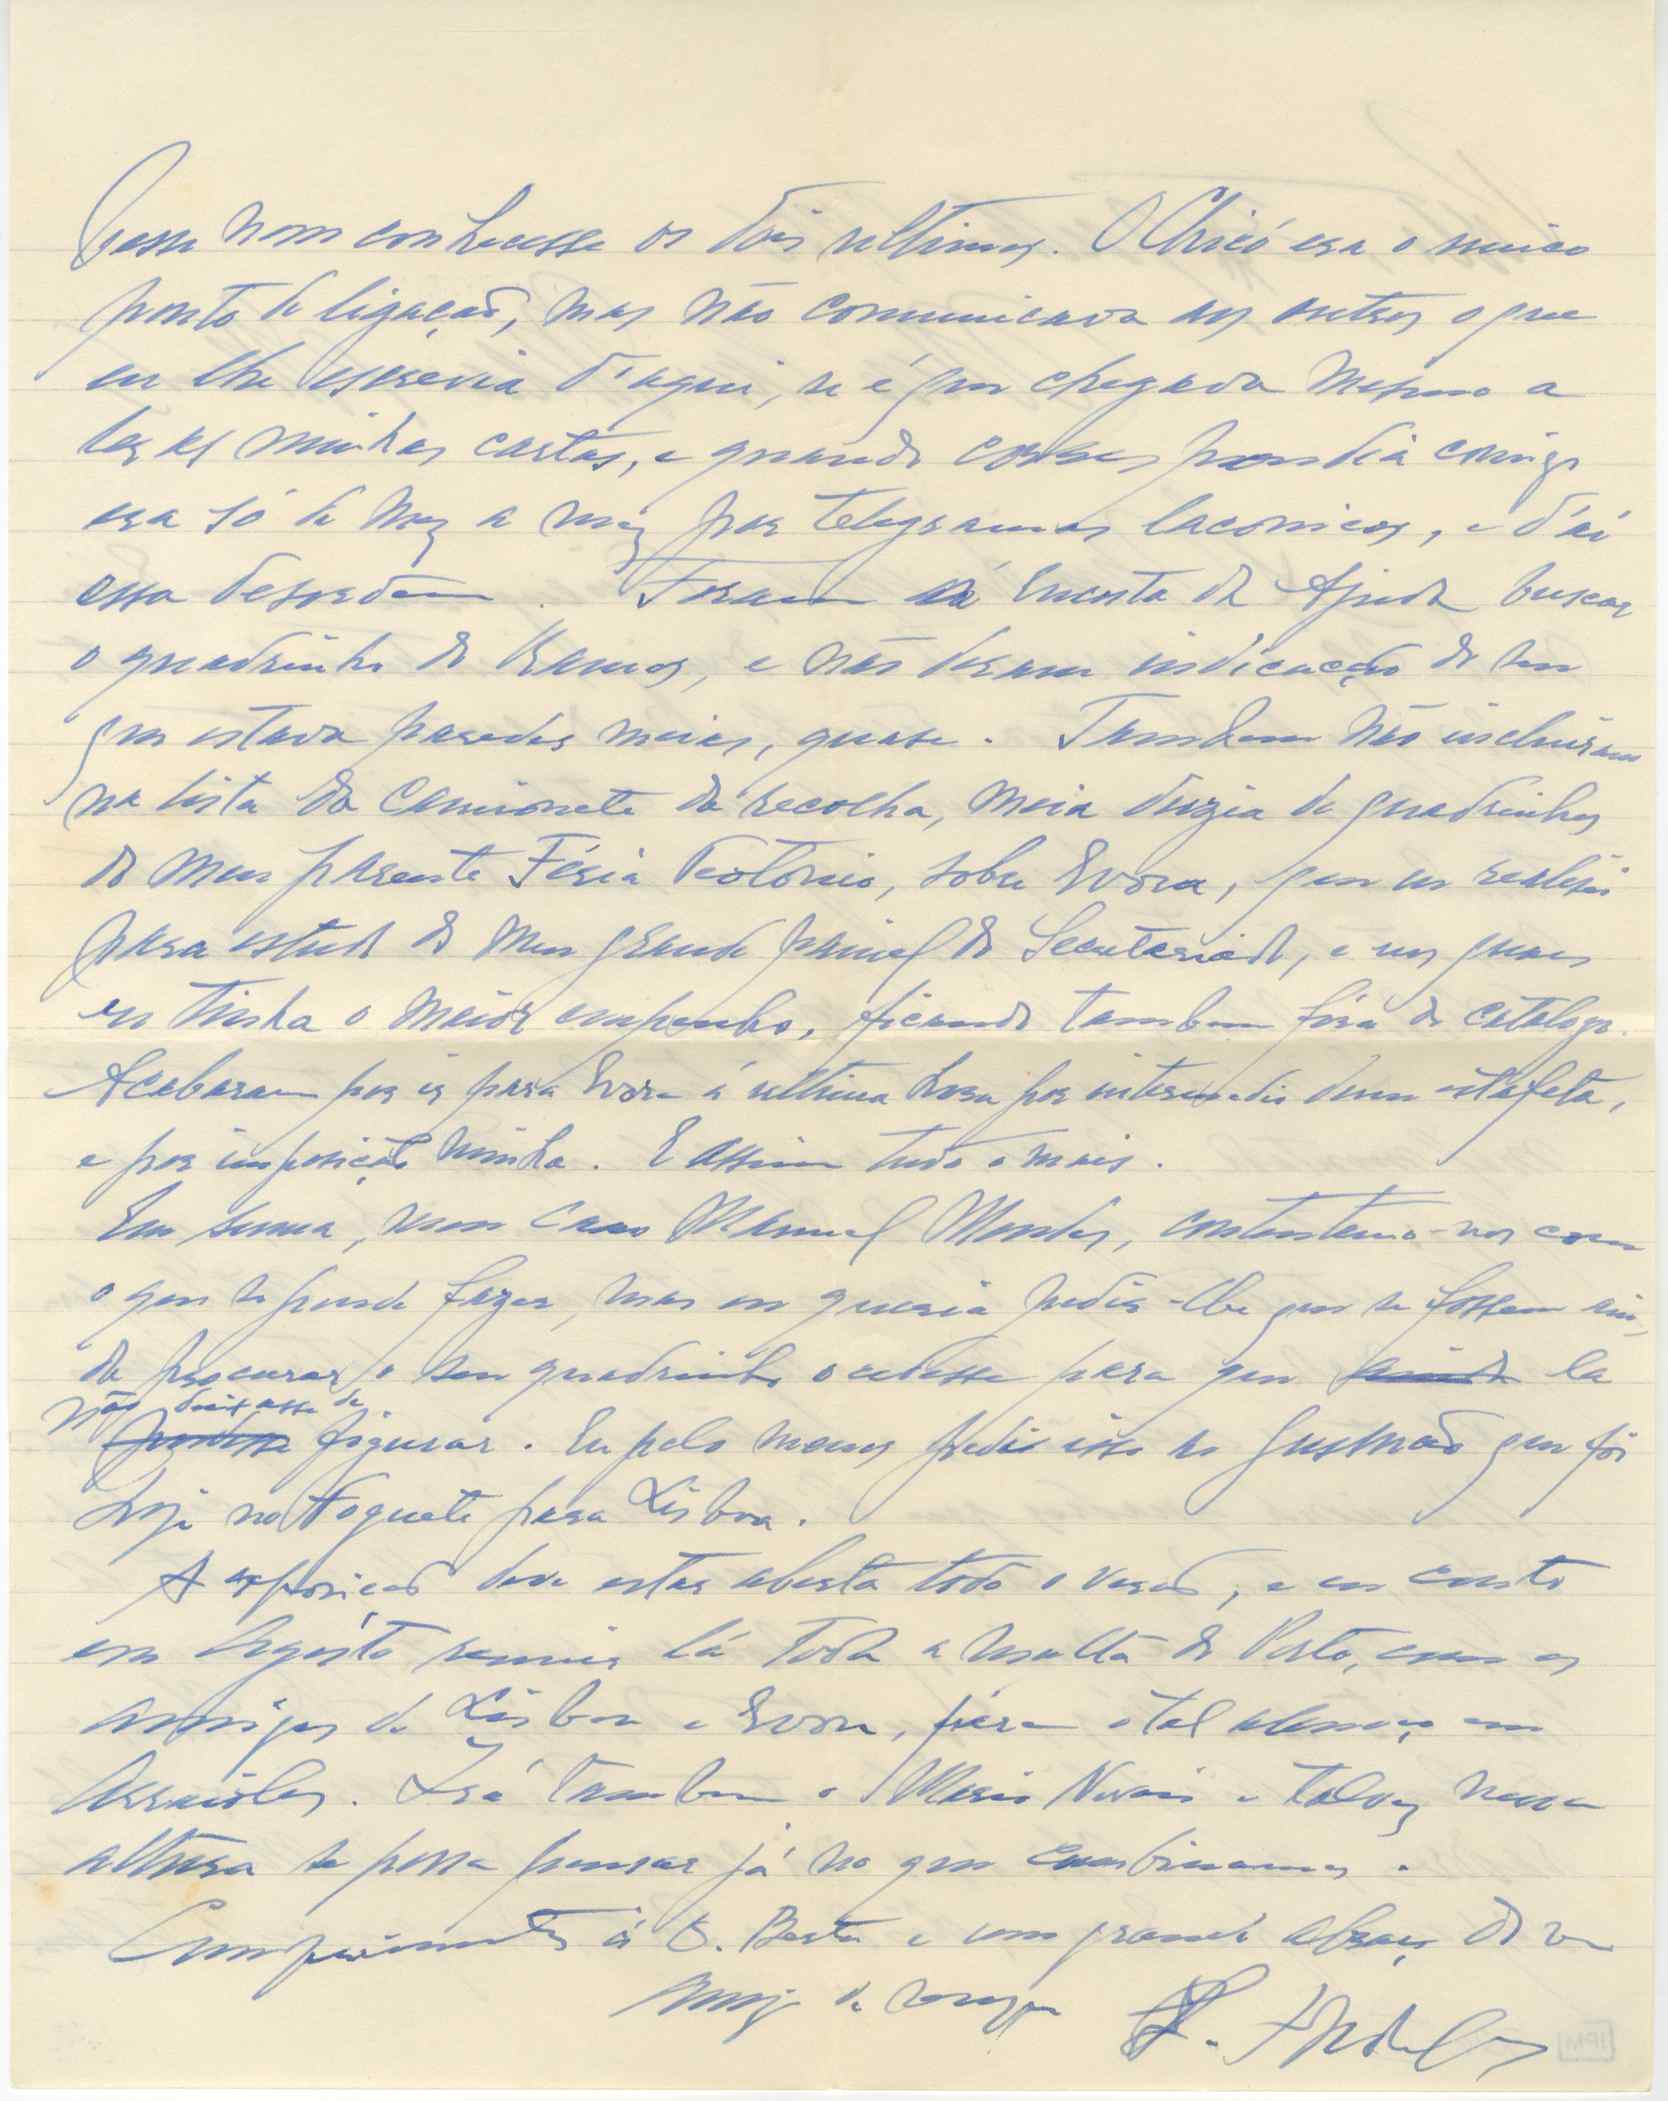 nem conhecesse os dois ultimos. O Chicó era o unico
ponto de ligação, mas não comunicava aos outros o que
eu lhe escrevia d'aqui, se é que chegava mesmo a
ler as minhas cartas, e quando correspondia comigo
era só de vez a vez por telegramas laconicos, e d'ai
essa desordem. Foram á Encosta da Ajuda buscar
o quadrinho do Ramos, e não deram indicação do seu
que estava paredes meias, quase. Tambem não incluiram
na lista da camionete da recolha, meia duzia de quadrinhos
do meu parente Féria Teotonio, sobre Evora, que eu realisei
para estudo do meu grande painel do Secretariado, e nos quaes
eu tinha o maior empenho, ficando tambem fóra do catalogo.
Acabaram por ir para Evora á ultima hora por intermedio dum estafeta,
e por imposição minha. E assim tudo o mais.
Em suma, meu caro Manuel Mendes, contentemo-nos com
o que se poude fazer, mas eu queria pedir-lhe que se fossem ain-
da procurar o seu quadrinho o cedesse para que ainda la
não deixasse de
podesse figurar. Eu pelo menos pedi isso ao Gusmão que foi
hoje no Foguete para Lisboa.
A exposição deve estar aberta todo o verão, e eu conto
em Agosto reunir lá toda a malta do Porto, com os
amigos de Lisboa e Evora, para o tal almoço em
Arraiolos. Irá tambem o Mario Novais e talvez nessa
altura se possa pensar já no que combinamos.
Cumprimentos á D. Berta e um grande abraço do seu